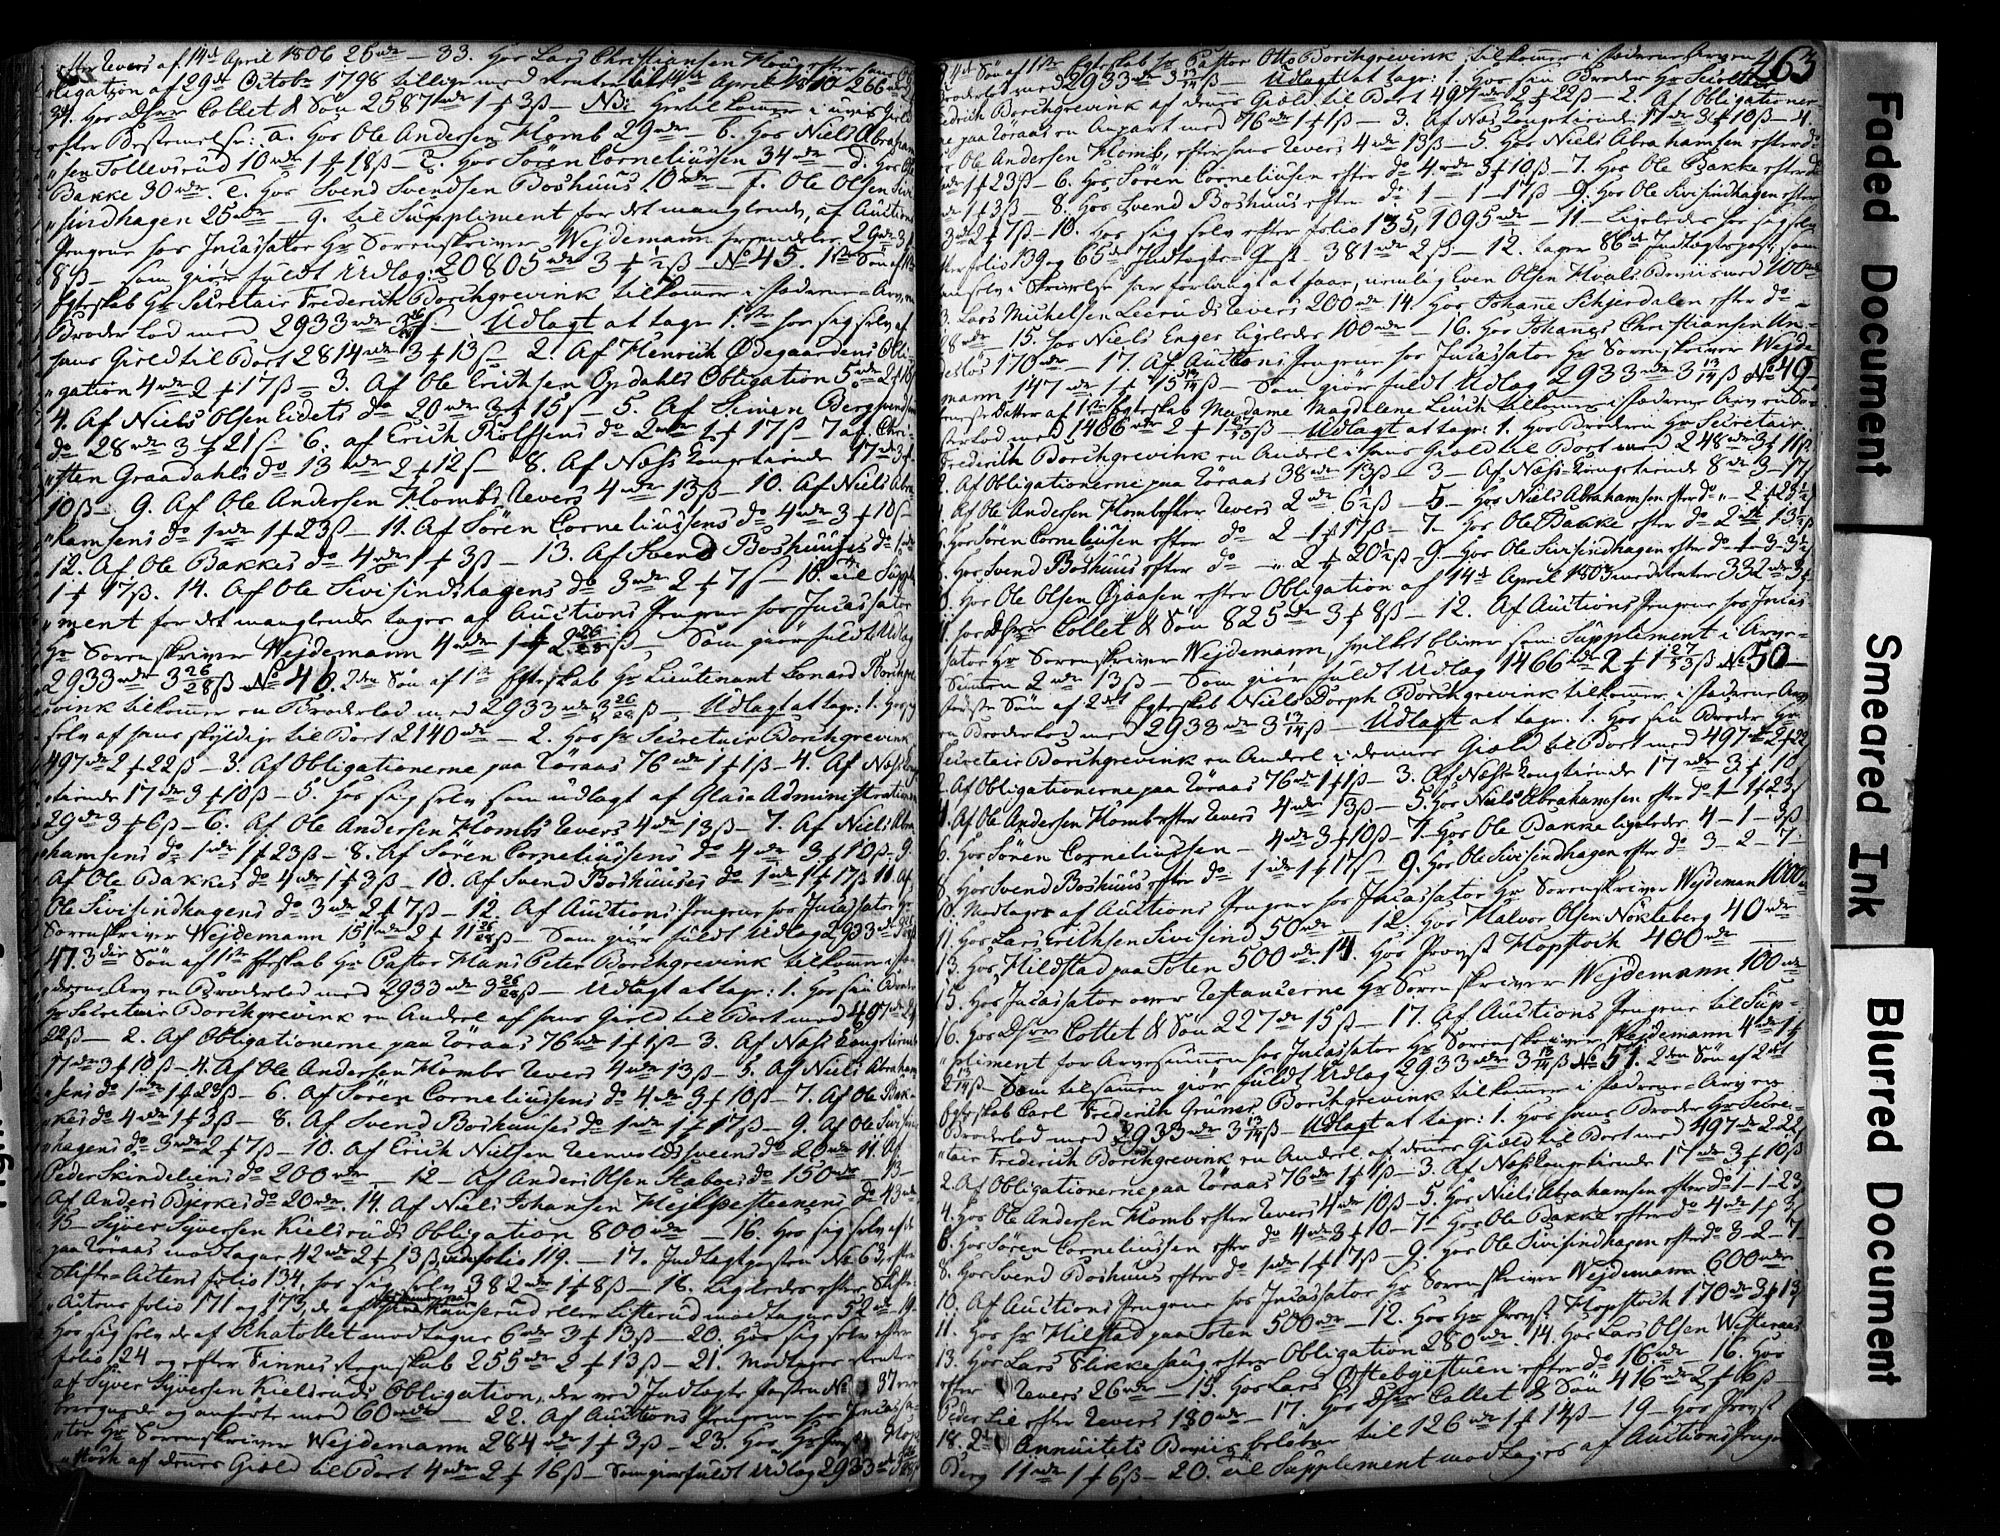 efter Revers af 14de April 1806 25 rdr — 33. Hos Lars Christiansen Houg efter hans Ob-
ligation af 29de Octobr 1798 tillige med renter til 14de April 1810 266 rdr
34. Hos DHrr Collet & Søn 2587 rdr 1 f 3 ß — NB: Hertil kommer i uvis Gield
efter Bestemelse: a. Hos Ole Andersen Klomb 29 rdr — b. Hos Niels Abraham
sen Tollevsrud 10 rdr 1 f 18 ß — c. Hos Sören Corneliussen 34 rdr — d. Hos Ole
Bakke 30 rdr e. Hos Svend Svendsen Boshuus 10 rdr — f. Ole Olsen Sivi
sindhagen 25 rdr — g. til Suppliment for det manglende, af Auctions
Pengene hos Incassator Hr Sorenskriver Wejdemann 29 rdr 3 f
8 ß — som giør fuldt Udlag: 20805 rdr 3 f ½ ß — No 45. 1ste Søn af 1ste
Egteskab Hr Secretair Frederich Borchgrevink tilkommer i Fædrene-Arv en
Broderlod med 2933 rdr 3 26/28 ß — Udlagt at tage 1. hos sig selv af
hans Gield til Boet 2814 rdr 3 f 13 ß — 2. Af Henrich Ødegaardens Obli-
gation 4 rdr 2 f 17 ß — 3. Af Ole Erichsen Opdahls Obligation 5 rdr 2 f 18 ß
4. Af Niels Olsen Eidets do 20 rdr 3 f 15 ß — 5. Af Simen Bergsvendsen
do 28 rdr 3 f 21 ß — 6. af Erich Rolfsens do 2 rdr 1 f 17 ß — 7 af Chri-
sten Graadahls do 13 rdr 2 f 12 ß — 8. Af Næss Kongetiende 17 rdr 3 f
10 ß — 9. Af Ole Andersen Klombs Revers 4 rdr 13 ß — 10. Af Niels Abra-
hamsens do 1 rdr 1 f 23 ß — 11. Af Sören Corneliussens do 4 rdr 3 f 10 ß —
12. Af Ole Bakkes do 4 rdr 1 f 3 ß — 13. Af Svend Boshuuses do 1 rdr
1 f 17 ß. 14. Af Ole Sivisindhagens do 3 rdr 2 f 7 ß — 15. til Supple
ment for det manglende tages af Auctions Pengene hos Incassator
Hr Sorenskriver Wejdemann 4 rdr 1 f 2 26/28 ß — Som giør fuldt Udlag
2933 rdr 3 26/28 ß No 46. 2den Søn af 1ste Egteskab Hr Lieutenant Lonard Borchgre
vink tilkommer en Broderlod med 2933 rdr 3 26/28 ß — Udlagt at tage: 1. Hos sig
selv af hans skyldige til Boet 2140 rdr — 2. Hos Hr Secretair Borchgrevink
497 rdr 2 f 22 ß — 3. Af Obligationerne paa Röraas 76 rdr 1 f 1 ß — 4. Af Næss Konge
tiende 17 rdr 3 f 10 ß — 5. Hos sig selv som udlagt af Glasa Administration
29 rdr 3 f 6 ß — 6. Af Ole Andersen Klombs Revers 4 rdr 13 ß — 7. Af Niels Abra
hamsens do 1 rdr 1 f 23 ß — 8. Af Sören Corneliussens do 4 rdr 3 f 10 ß. 9.
Af Ole Bakkes do 4 rdr 1 f 3 ß — 10. Af Svend Boshuuses do 1 rdr 1 f 17 ß 11. Af
Ole Sivisindhagens do 3 rdr 2 f 7 ß — 12. Af Auctions Pengene hos Incassator Hr
Sorenskriver Wejdemann 151 rdr 2 f 11 26/28 ß — Som giør fuldt Udlag 2933 rdr 3 26/28
47. 3die Søn af 1ste Egteskab Hr Pastor Hans Peter Borchgrevink tilkommer i Fæ-
drene Arv en Broderlod med 2933 rdr 3 26/28 ß — Udlagt at tage: 1. Hos sin Broder
Hr Secretair Borchgrevink en Andeel af hans Gield til Boet med 497 rdr 2 f
22 ß — 2. Af Obligationerne paa Röraas 76 rdr 1 f 1 ß — 3. Af Næss Kongetiende
17 rdr 3 f 10 ß — 4. Af Ole Andersen Klombs Revers 4 rdr 13 ß — 5. Af Niels Abraham
sens do 1 rdr 1 f 23 ß — 6. Af Sören Corneliussens do 4 rdr 3 f 10 ß — 7. Af Ole Bak-
kes do 4 rdr 1 f 3 ß — 8. Af Svend Boshuuses do 1 rdr 1 f 17 ß — 9. Af Ole Sivisind
hagens do 3 rdr 2 f 7 ß — 10. Af Erich Nielsen do 20 rdr 11. Af
Peder Skindeliens do 200 rdr — 12 — Af Anders Olsen Staboes do 150 rdr 13 —
Af Anders Bjerkes do 20 rdr. 14. Af Niels Johansen do 43 rdr
15 — Syver Syversen Kielsruds Obligation 800 rdr — 16. Hos sig selv af
paa Röraas modtagne 42 rdr 2 f 13 ß, folio 119. — 17. Indtægtposten No 63, efter
Skifte-Actens folio 134. hos sig selv 382 rdr 1 f 8 ß — 18. Ligeledes efter Skifte-
Actens folio 171 og 173, de af eller Litterud modtagne 52 rdr 19.
Hos sig selv de af Schatollet modtagne 6 rdr 3 f 13 ß — 20. Hos sig selv efter
folio 124 og efter Finnes Regnskab 255 rdr 2 f 13 ß — 21. Modtages renter
af Syver Syversen Kielsruds Obligation, der ved Indtægts Posten No 37 er
beregnede og anførte med 60 rdr — 22. Af Auctions Pengene hos Incassa-
tor Hr Sorenskriver Wejdemann 284 rdr 1 f 3 ß — 23. Hos Hr Provst Klop
stock af dennes Gield til Boet 4 rdr 2 f 16 ß — Som giør fuldt Udlag 2933 rdr 3 26/28 ß
463
4de Søn af 1ste Egteskab Hr Pastor Otto Borchgrevink tilkommer i Fædrene Arv en
Broderlod med 2933 rdr 3 13/14 ß — Udlagt at tage: 1. Hos sin Broder Hr Secretair
Fredrich Borchgrevink af dennes Gield til Boet 497 rdr 2 f 22 ß — 2. Af Obligationer-
ne paa Röraas en Anpart med 76 rdr 1 f 1 ß — 3. Af Næs Kongetiende 17 rdr 3 f 10 ß — 4.
Hos Ole Andersen Klomb, efter hans Revers 4 rdr 13 ß — 5. Hos Niels Abrahamsen efter do
1 rdr 1 f 23 ß — 6. Hos Sören Corneliusen efter do 4 rdr 3 f 10 ß — 7. Hos Ole Bakke efter do
4 rdr 1 f 3 ß — 8. Hos Svend Boshuus efter do 1 — 1 — 17 ß — 9. Hos Ole Sivisindhagen efter
3 rdr 2 f 7 ß — 10. Hos sig selv efter folio 135, 1095 rdr — 11 — Ligeledes hos sig selv
efter folio 139 og 65de Indtægts-Post 381 rdr 2 ß — 12. tages 86de Indtægtspost, som
han selv i Skrivelse har forlangt at faae, nemlig Even Olsen Hvals Beviis med 100 rdr
13. Lars Michelsen Leeruds Revers 200 rdr 14. Hos Johane Schjerdalen efter do
28 rdr — 15. hos Niels Enger ligeledes 100 rdr — 16. Hos Johanes Christiansen Un-
deslos 170 rdr — 17. Af Auctions Pengene hos Incassator Hr Sorenskriver Wejde
mann 147 rdr 1 f 15 13/14 ß — Som giør fuldt Udlag 2933 rdr 3 13/14 ß No 49
Datter af 1ste Egteskab Madame Magdalene Leuch tilkommer i Fædrene Arv en Sø-
sterlod med 1466 rdr 2 f 1 27/53 ß — Udlagt at tage: 1. Hos Broderen Hr Secretair
Frederich Borchgrevink en Andeel i hans Gield til Boet med 248 rdr 3 f 11 ß
2. Af Obligationerne paa Röraas 38 rdr 13 ß — 3 — Af Næss-Kongetiende 8 rdr 3 — 17
4. Af Ole Andersen Klomb efter Revers 2 rdr 6½ ß — 5 — Hos Niels Abrahamsen efter do " 2 f 23½
6. Hos Sören Corneliusen efter do 2 — 1 f 17 ß — 7. Hos Ole Bakke efter do 2 rdr f 13½
8. Hos Svend Boshuus efter do — " 2 f 20½ ß — 9 — Hos Ole Sivisindhagen efter do 1 — 3 — 3½
10. Hos Ole Olsen Øjaasen efter Obligation af 14de April 1803 med renter 332 rdr 3 f
11. hos DHrr Collet & Søn 825 rdr 3 f 8 ß — 12. Af Auctions Pengene hos Incas-
sator Hr Sorenskriver Wejdemann, hvilket bliver som Supplement i Arve-
Summen 2 rdr 13 ß — Som giør fuldt Udlag 1466 rdr 2 f 1 27/53 ß No 50 —
Søn af 2det Egteskab Niels Dorph Borchgrevink tilkommer i Fædrene Arv
en Broderlod med 2933 rdr 3 13/14 ß — Udlagt at tage: 1. Hos sin Broder Hr
Secretair Borchgrevink en Andeel i dennes Gield til Boet med 497 rdr 2 f 22
2. Af Obligationerne paa Röraas 76 rdr 1 f 1 ß — 3. Af Næss-Kongetiende 17 rdr 3 f 10
4. Af Ole Andersen Klomb efter Revers 4 rdr 13 ß — 5. Hos Niels Abrahamsen efter do 1 — 1 f 23
6. Hos Sören Corneliussen — 4 rdr 3 f 10 ß — 7. Hos Ole Bakke ligeledes 4 — 1 — 3 ß
8. Hos Svend Boshuus efter do 1 rdr 1 f 17 ß — 9. Hos Ole Sivisindhagen efter do 3 — 2 — 7 —
10. Modtages af Auctions Pengene hos Incassator Hr Sorenskriver Wejdeman 1000 rdr
11. Hos Lars Erichsen Sivisind 50 rdr — 12. Hos Halvor Olsen Nökleberg 40 rdr
13. Hos Hildstad paa Toten 500 rdr. 14. Hos Provst Klopstock 400 rdr —
15. Hos Incassator over Restancerne Hr Sorenskriver Wejdemann 100 rdr
16. Hos DHrr Collet & Søn 227 rdr 15 ß — 17. Af Auctions Pengene til Sup-
pliment for Arvesummen hos Incassator Hr Sorenskriver Wejdemann 4 rdr 1 f
2 13/14 ß — Som tilsamen giør fuldt Udlag 2933 rdr 3 13/14 ß No 51. 2den Søn af 2det
Egteskab Carl Frederich Grüner Borchgrevink tilkommer i Fædrene-Arv en
Broderlod med 2933 rdr 3 13/14 ß — Udlagt at tage: 1. Hos hans Broder Hr Secre-
tair Frederich Borchgrevink en Andeel af dennes Gield til Boet med 497 rdr 2 22
2. Af Obligationerne paa Röraas 76 rdr 1 f 1 ß — 3. Af Næss Kongetiende 17 rdr 3 f 10 ß
4. hos Ole Andersen Klomb efter Revers 4 rdr 10 ß — 5. Hos Niels Abrahamsen efter do 1 — 1 — 23
6. Hos Sören Corneliussen efter do 4 rdr 3 f 10 — 7. Hos Ole Bakke efter do 4 rdr 1 f 3 ß
8. Hos Svend Boshuus efter do 1 rdr 1 f 17 ß — 9. hos Ole Sivisindhagen efter do 3 — 2 — 7 —
10. Af Auctions Pengene hos Incassator Hr Sorenskriver Wejdemann 600 rdr
11. Hos Hr Hilstad paa Toten 500 rdr — 12. Hos Hr Provst Klopstock 170 rdr 3 f 13
13. Hos Lars Flikkehaug efter Obligation 280 rdr. 14. Hos Lars Olsen Westeraas
efter Revers 26 rdr — 15. Hos Lars efter do 16 rdr — 16. Hos
Peder Lie efter Revers 180 rdr — 17. Hos DHrr Collet & Søn 416 rdr 2 f 6 ß —
18. 2de Annuitets Beviis beløber til 126 rdr 1 f 14 ß — 19 — Hos Provst
Berg 11 rdr 1 f 6 ß — 20. til Supplement modtages af Auctions Penge
Faded Document
Smeared Ink
Blurred Document